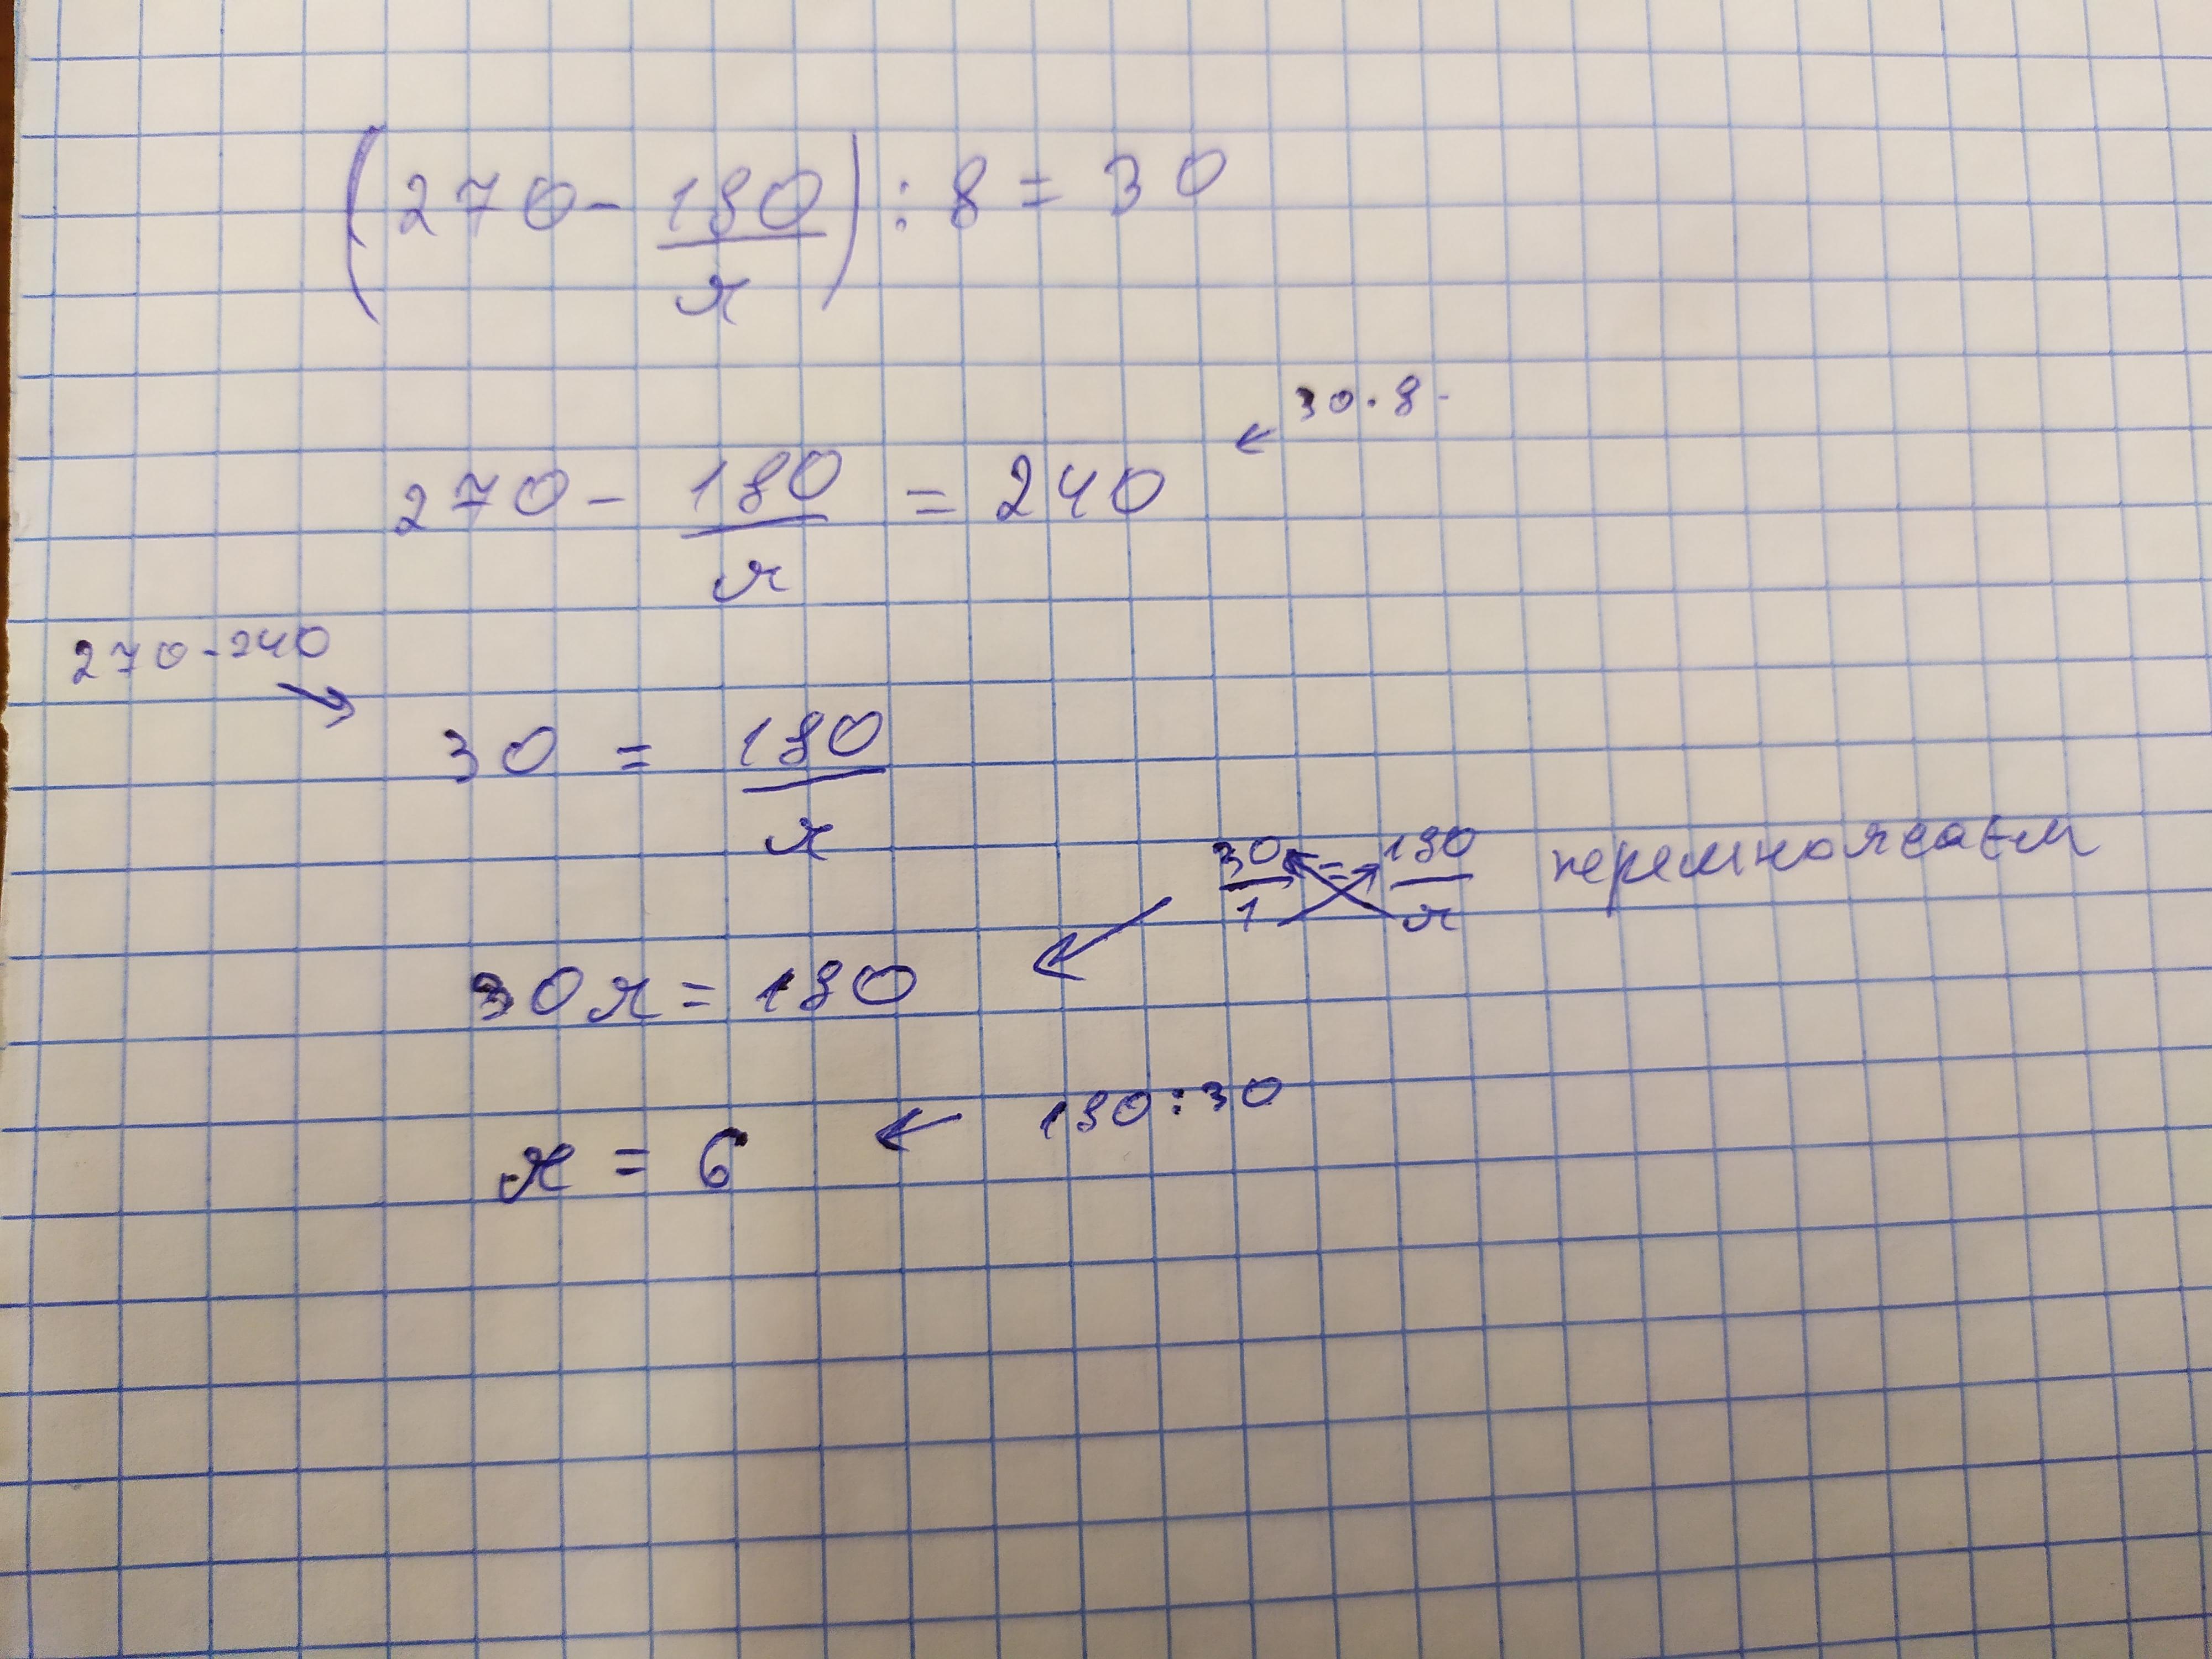 (270 - 180/x) : 8 = 30
30 · 8
270 - 180/x = 240
270 - 240
30 = 180/x
30/1 = 180/x перемножаем
30x = 180
180 : 30
x = 6